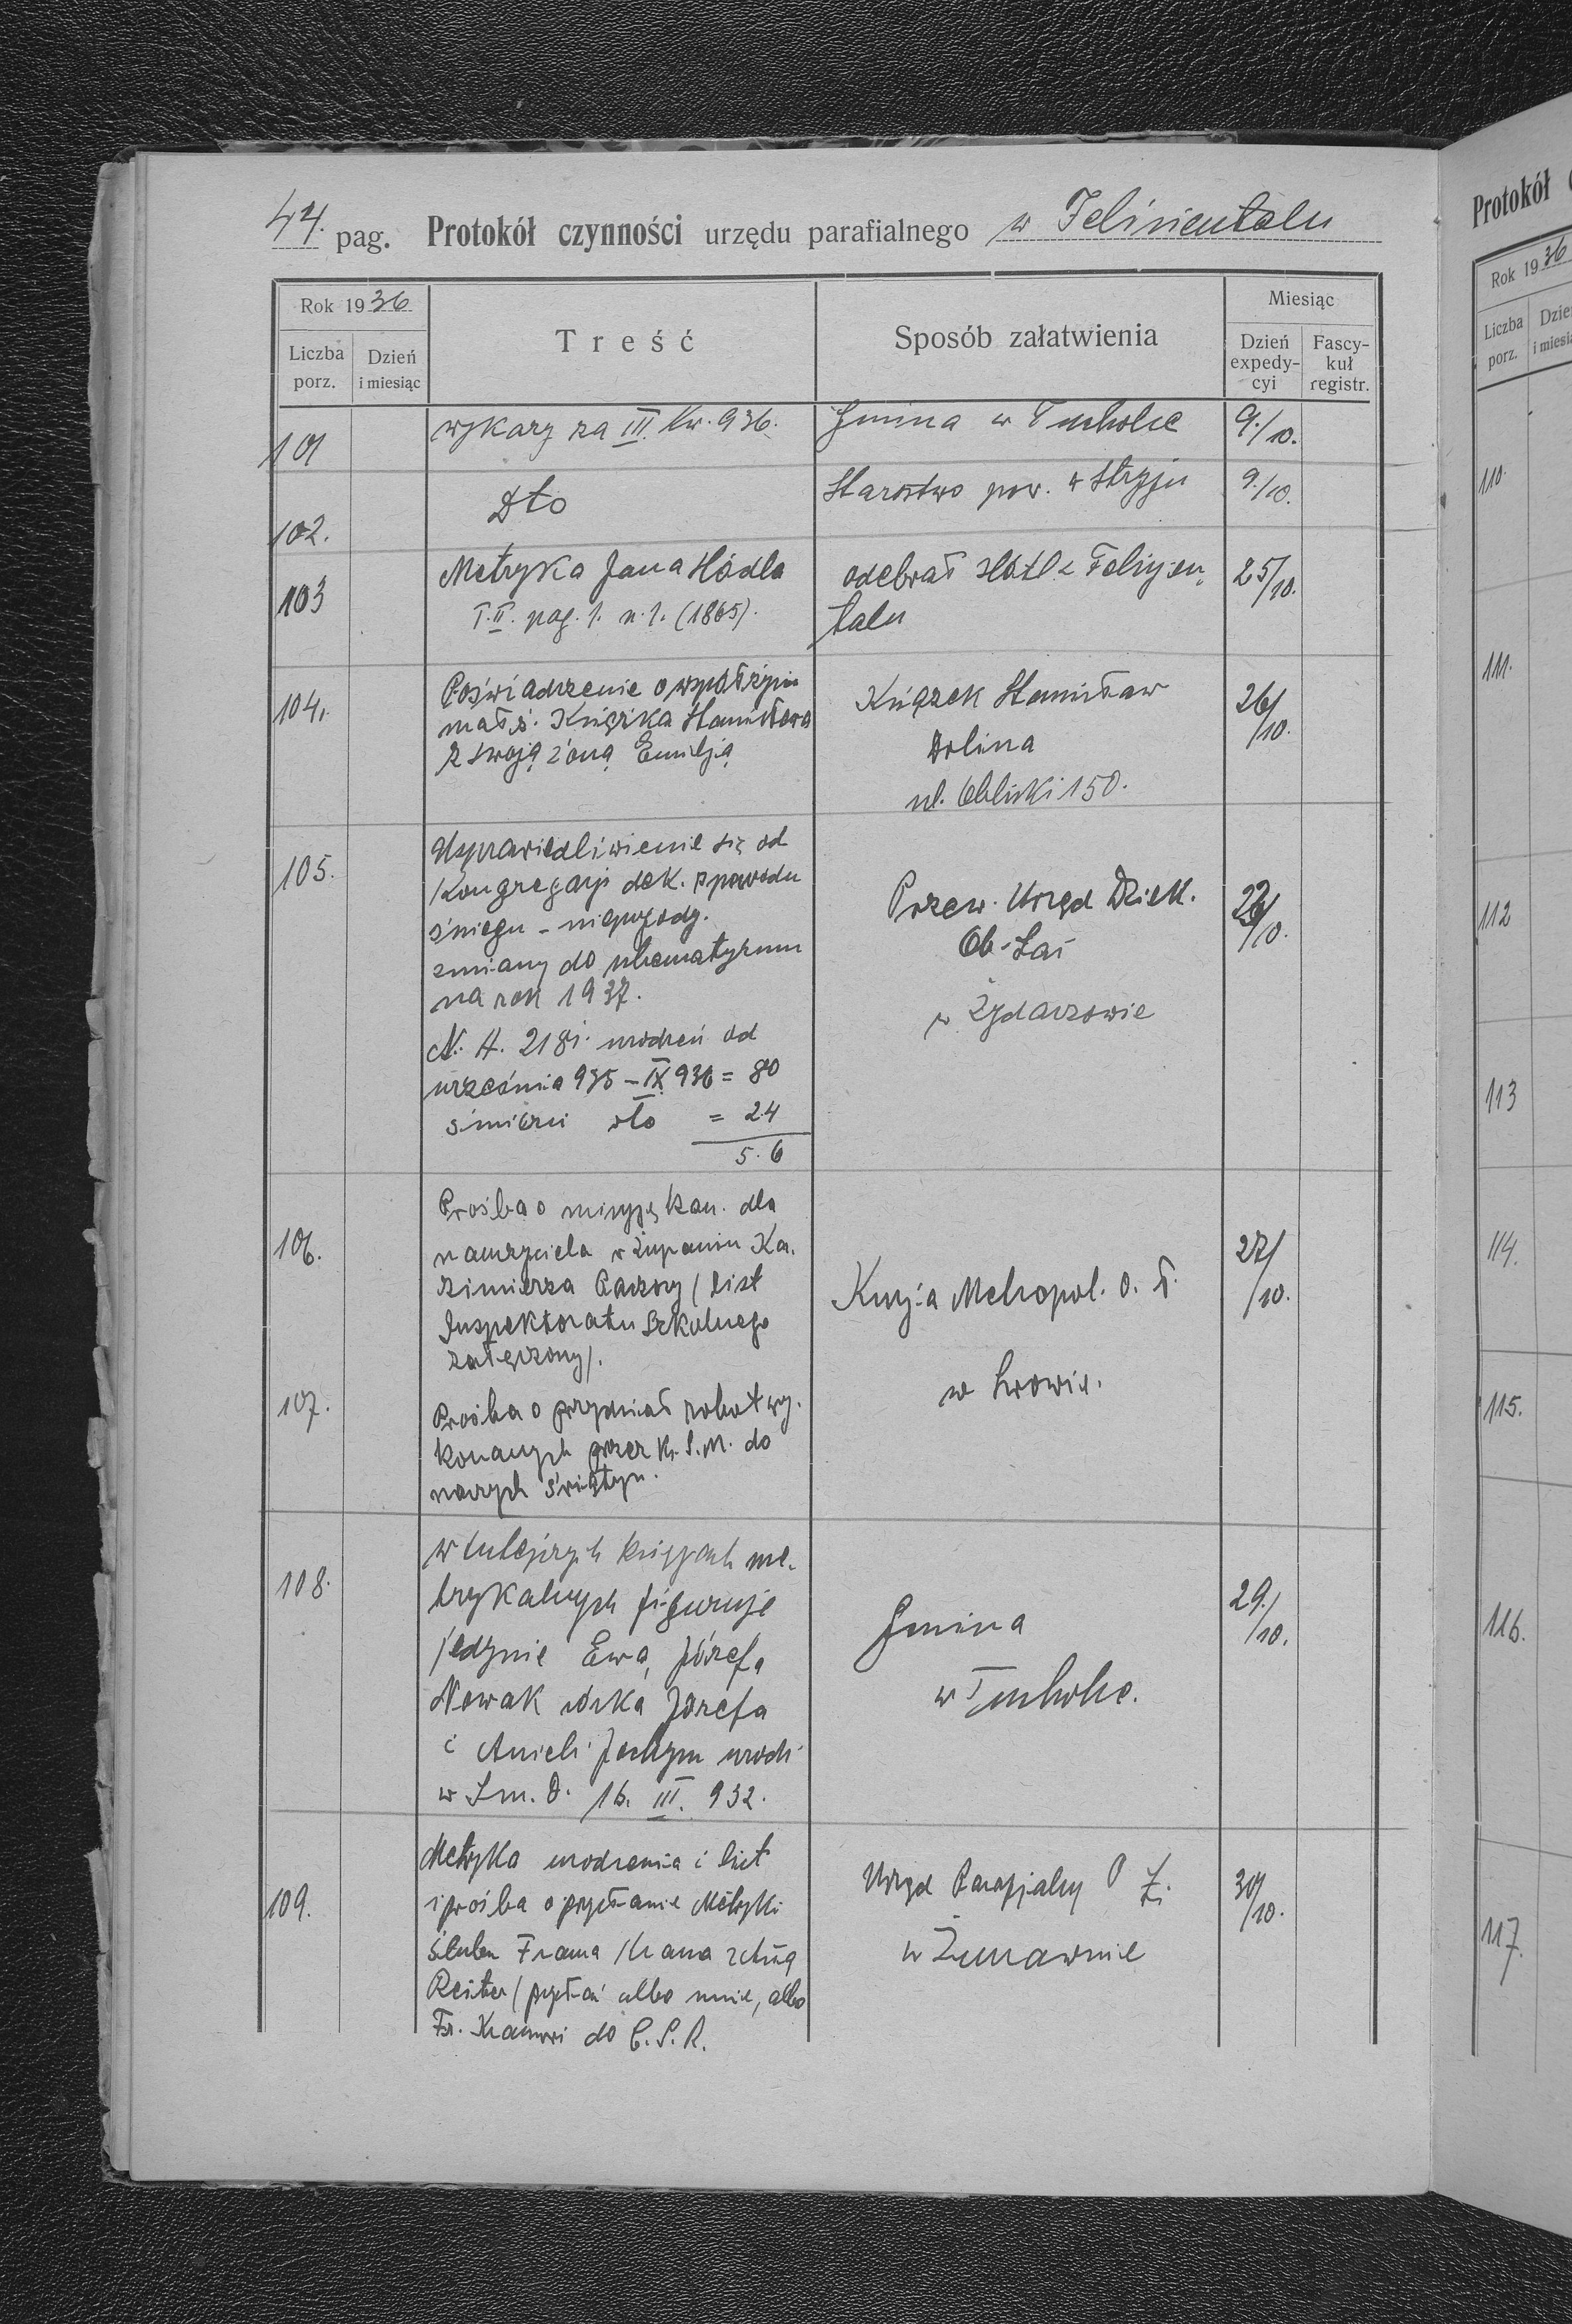 44. pag. Protokół czynności urzędu parafialnego w Felizientalu
Rok 1936
Liczba porz.
Dzień i miesiąc
Treść
Sposób załatwienia
Miesiąc
Dzień expedycyi
Fascykuł registr.
101 wykazy za III. kw. 936. Gmina w Tucholce 9./10.
102. Dto Starostwo pow. w Stryju 9./10.
103 Metryka Jana Hódla odebrał z Felizien 25/10.
T.II. pag. 1. n. 1. (1865). talu
104. Poświadczenie o współżyciu Książek Stanisław 26/10.
małż. Książka Stanisława Dolina
z swoją żoną Emilją ul. 150.
105. Usprawiedliwienie się od
Kongregacji dek. z powodu Przew. Urząd Dziek. 10.
śniegu - niepogody. Ob. Łać
zmiany do schematyzmu w Żydaczowie
na rok 1937.
N. A. 218i. urodzeń od
września 935 - IX 936 = 80
śmierci dto = 24
5.6
106. Prośba o misyję kan. dla 27/10.
nauczyciela w Żupaniu Ka.
zimierza (list Kurja Metropol. o. ł.
Inspektoratu Szkolnego
załączony). w Lwowie.
107. Prośba o przydział robot wy.
konanych przez K.S.M. do
świątyn.
108. w tutejszych księgach me. 29./10.
trykalnych figuruje Gmina
jedynie Ewa, Józefa w Tucholce.
Nowak córka Józefa
i Anieli urodz.
w Sm. D. 16. III. 932.
109. Metryka urodzenia i list Urząd Parafjalny O Ł. 30/10.
i prośba o przysłanie Metryki w Żurawnie
ślubu Franza Krausa z
Reiter (przysłać albo mnie, albo
Fr. Krausowi do C.S.R.
Protokół
Rok 1936
Liczba porz.
110.
111.
112
113
114.
115.
116.
117.